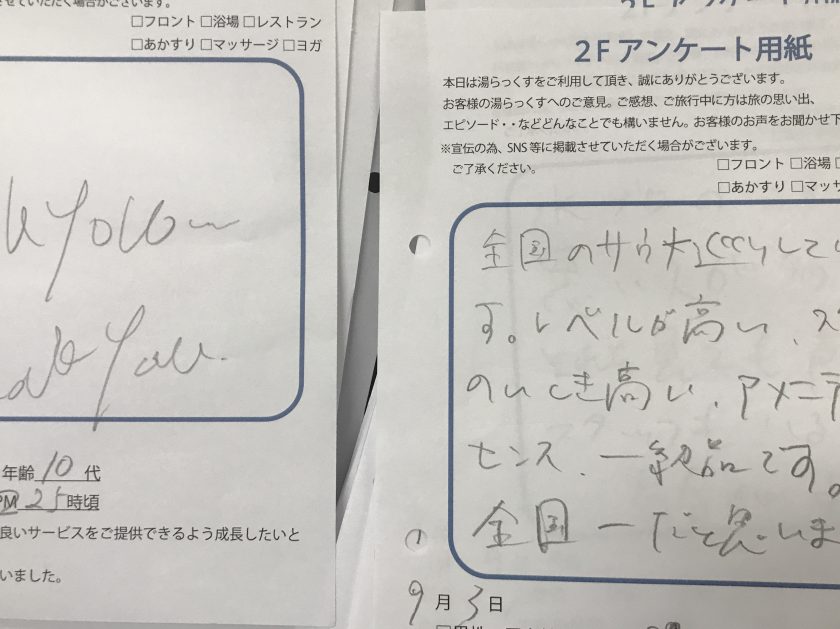 せていただく場合がございます。
□フロント □浴場 □レストラン
□あかすり □マッサージ □ヨガ
You
年齢 10 代
PM 25 時頃
良いサービスをご提供できるよう成長したいと
いました。
2Fアンケート用紙
本日は湯らっくすをご利用して頂き、誠にありがとうございます。
お客様の湯らっくすへのご意見。ご感想、ご旅行中に方は旅の思い出、
エピソード・・などどんなことでも構いません。お客様のお声をお聞かせ下
※宣伝の為、SNS 等に掲載させていただく場合がございます。
ご了承ください。
□フロント □浴場
□あかすり □マッサ
全国のサウナ巡りして
す。レベルが高い、ス
のいしき高い、アメニテ
センス、一級品です。
全国一だと思いま
9 月 3 日